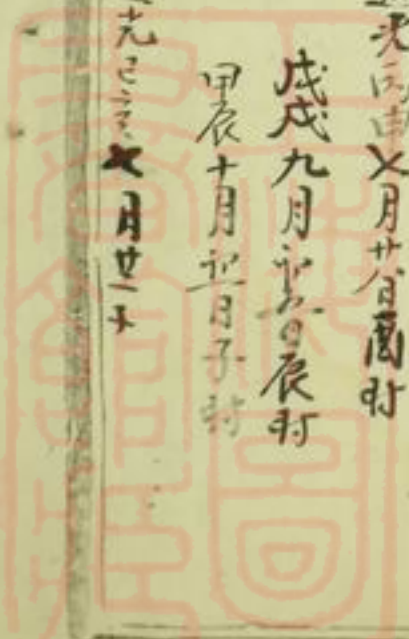 光丙申七月廿八日酉时
戊戌九月初六日辰时
甲辰十月初一日子时
光己亥七月廿一子